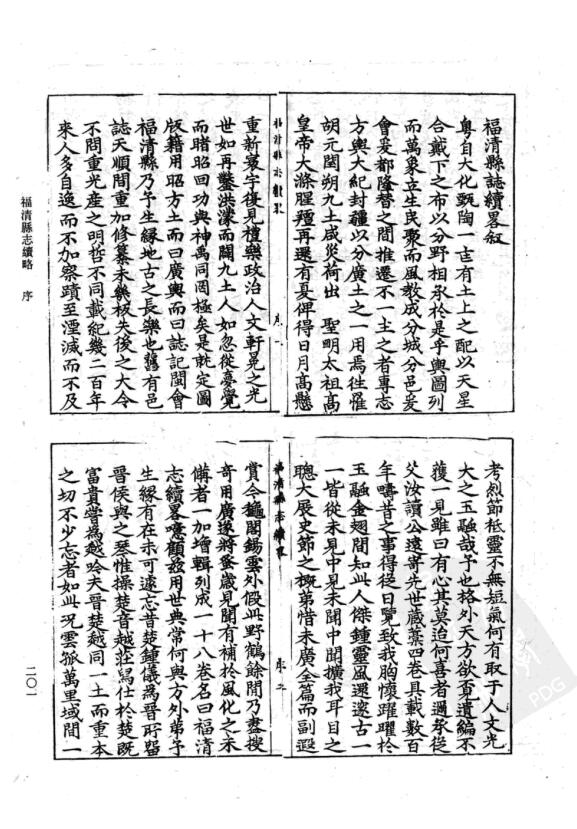 福清縣誌續畧叙
粵自大化甄陶一吉有土上之配以天星
合戴下之布以分野相承於是乎輿圖列
而萬象立生民聚而風教成分城分邑爰
會爰都隆替之間推遷不一主之者專志
方輿大紀封疆以分廣土之一用焉徃罹
胡元闔朔九土咸災荷出　聖明太祖高
皇帝大滌腥羶再還有夏俾得日月高懸
重新寰宇復見禮樂政治人文軒冕之光
世如再鑿洪濛而闢九土人如忽從夢覺
而睹昭回功與神禹同罔極矣是就定圖
版籍用昭方土而曰廣輿而曰誌記閩會
福清縣乃予生緣地古之長樂也舊有邑
誌天順間重加修纂未樂板失後之大令
不問重光產之明哲不同載紀幾二百年
來人多自逸而不加察蹟至湮滅而不及
福清縣志續畧
序一
考烈節祗靈不無短氣何有取于人文光
大之玉融哉予也格外天方欲責遺編不
獲一見雖曰有心其莫迫何喜者過承從
父汝讀公遠寄先世歲藁四卷具載數百
年疇昔之事得從日覽致我胸懷躍躍於
玉融金翅間知此人傑鍾靈風還邃古一
一皆從未見中見未聞中聞擴我耳目之
聰大展史節之概第惜未廣全篇而副遐
賞今龝閣錫雲外假與野鶴餘閒乃盡搜
奇用廣遂將蚤歲見聞有補於風化之未
備者一加增輯列成一十八卷名曰福清
志續畧噫顧茲用世典常何與方外弟予
生緣有在未可遽忘昔楚鍾儀為晉所畱
晉侯與之琴惟操楚音越莊舄仕於楚既
富貴嘗為越吟夫晉楚越同一土而重本
之切不少忘者如此況雲孤萬里域間一
福清縣志續畧
序二
福清縣志續略　序
二〇一